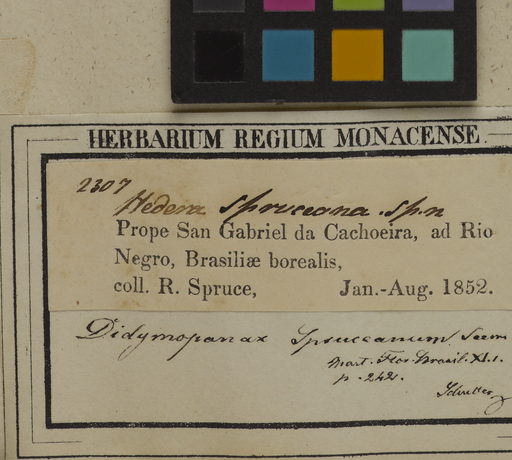 HERBARIUM REGIUM MONACENSE
2307
Hedera Spruceana sp.n
Prope San Gabriel da Cachoeira, ad Rio
Negro, Brasiliæ borealis,
coll. R. Spruce, Jan.-Aug. 1852.
Didymopanax Spruceanum Seem
Mart. Flor. Brasil. XI.1.
p. 242.